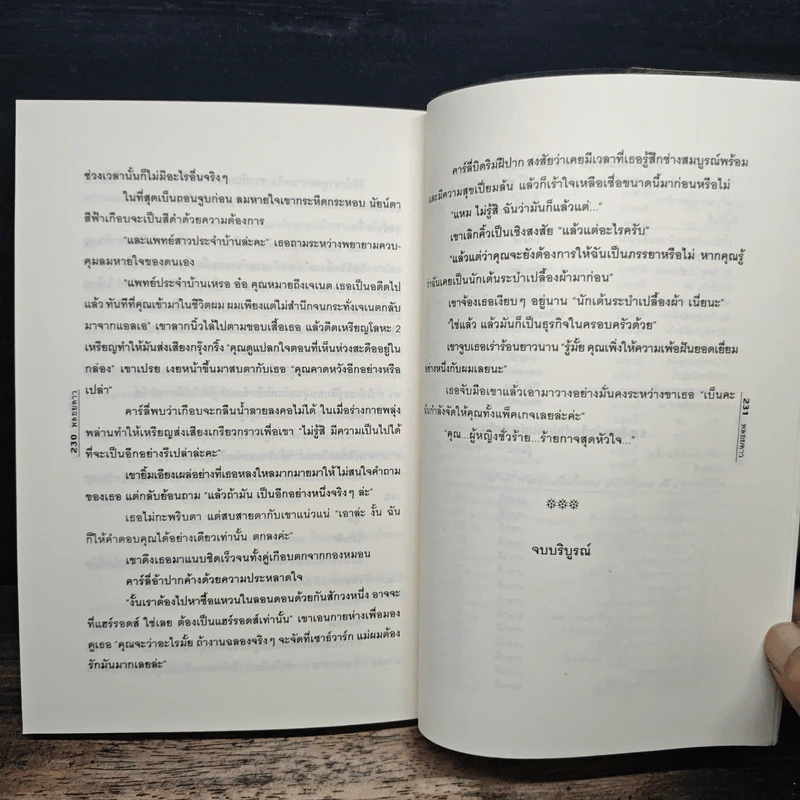 ช่วงเวลานั้นก็ไม่มีอะไรอื่นจริงๆ
ในที่สุดเบ็นถอนจูบก่อน ลมหายใจเขากระหืดกระหอบ นัยน์ตา
สีฟ้าเกือบจะเป็นสีดำด้วยความต้องการ
"และแพทย์สาวประจำบ้านล่ะคะ" เธอถามระหว่างพยายามควบ-
คุมลมหายใจของตนเอง
"แพทย์ประจำบ้านเหรอ อ๋อ คุณหมายถึงเจเนต เธอเป็นอดีตไป
แล้ว ทันทีที่คุณเข้ามาในชีวิตผม ผมเพียงแต่ไม่สำนึกจนกระทั่งเจเนตกลับ
มาจากแอลเอ" เขาลากนิ้วไล้ไปตามขอบเสื้อเธอ แล้วดีดเหรียญโลหะ 2
เหรียญทำให้มันส่งเสียงกรุ๊งกริ๊ง "คุณดูแปลกใจตอนที่เห็นห่วงสะดืออยู่ใน
กล่อง" เขาเปรย เงยหน้าขึ้นมาสบตากับเธอ "คุณคาดหวังอีกอย่างหรือ
เปล่า"
คาร์ลี่พบว่าเกือบจะกลืนน้ำลายลงคอไม่ได้ ในเมื่อร่างกายพลุ่ง
พล่านทำให้เหรียญส่งเสียงเกรียวกราวเพื่อเขา "ไม่รู้สิ มีความเป็นไปได้
ที่จะเป็นอีกอย่างรึเปล่าล่ะคะ"
เขายิ้มเอียงเผล่อย่างที่เธอหลงใหลมากมายมาให้ ไม่สนใจคำถาม
ของเธอ แต่กลับย้อนถาม "แล้วถ้ามัน เป็นอีกอย่างหนึ่งจริงๆ ล่ะ"
เธอไม่กะพริบตา แต่สบสายตากับเขาแน่วแน่ "เอาล่ะ งั้น ฉัน
ก็ให้คำตอบคุณได้อย่างเดียวเท่านั้น ตกลงค่ะ"
เขาดึงเธอมาแนบชิดเร็วจนทั้งคู่เกือบตกจากกองหมอน
คาร์ลี่อ้าปากค้างด้วยความประหลาดใจ
"งั้นเราต้องไปหาซื้อแหวนในลอนดอนด้วยกันสักวงหนึ่ง อาจจะ
ที่แฮร์รอดส์ ใช่เลย ต้องเป็นแฮร์รอดส์เท่านั้น" เขาเอนกายห่างเพื่อมอง
ดูเธอ "คุณจะว่าอะไรมั้ย ถ้างานฉลองจริงๆ จะจัดที่เซาธ์วาร์ก แม่ผมต้อง
รักมันมากเลยล่ะ"
230 พลอยดาว
คาร์ลี่บิดริมฝีปาก สงสัยว่าเคยมีเวลาที่เธอรู้สึกช่างสมบูรณ์พร้อม
และมีความสุขเปี่ยมล้น แล้วก็เร้าใจเหลือเชื่อขนาดนี้มาก่อนหรือไม่
"แหม ไม่รู้สิ ฉันว่ามันก็แล้วแต่..."
เขาเลิกคิ้วเป็นเชิงสงสัย "แล้วแต่อะไรครับ"
"แล้วแต่ว่าคุณจะยังต้องการให้ฉันเป็นภรรยาหรือไม่ หากคุณรู้
ว่าฉันเคยเป็นนักเต้นระบำเปลื้องผ้ามาก่อน"
เขาจ้องเธอเงียบๆ อยู่นาน "นักเต้นระบำเปลื้องผ้า เนี่ยนะ"
"ใช่แล้ว แล้วมันก็เป็นธุรกิจในครอบครัวด้วย"
เขาจูบเธอเร่าร้อนยาวนาน "รู้มั้ย คุณเพิ่งให้ความเพ้อฝันยอดเยี่ยม
อย่างหนึ่งกับผมเลยนะ"
เธอจับมือเขาแล้วเอามาวางอย่างมั่นคงระหว่างขาเธอ "เบ็นคะ
ฉันกำลังจัดให้คุณทั้งแพ็คเกจเลยล่ะค่ะ"
"คุณ...ผู้หญิงชั่วร้าย...ร้ายกาจสุดหัวใจ..."
จบบริบูรณ์
231 พลอยดาว